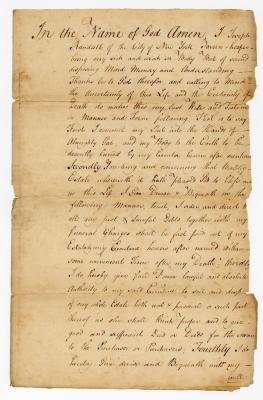 In the Name of God Amen I Joseph
Randall of the City of New York Tavern-keeper
being very sick and weak in Body But of sound
disposing Mind Memory and Understanding
Thanks be to God therefor and calling to Mind
the Uncertainty of this Life and the Certainty of
Death do make this my last Will and Testament
in Manner and Form following That is to say
First I commit my Soul into the Hands of
Almighty God, and my Body to the Earth to be
decently buried by my Executor herein after mentioned
Secondly Touching and concerning that Worldly
Estate wherewith it hath pleased God to bless me
in this Life I Give Devise & Bequeath in the
following Manner, First, I order and direct
all my just & lawful Debts together with my
funeral Charges shall be first paid out of my
Estate by my Executors herein after named within
some convenient Time after my Death, Thirdly
I do hereby give full Power lawful and absolute
Authority to my said Executors to sell and dispose
of my whole Estate both real & personal or such part
thereof as she shall think proper and to give
good and sufficient Deed or Deeds for the same
to the Purchaser or Purchasers, Fourthly I do
hereby Give devise and Bequeath unto my